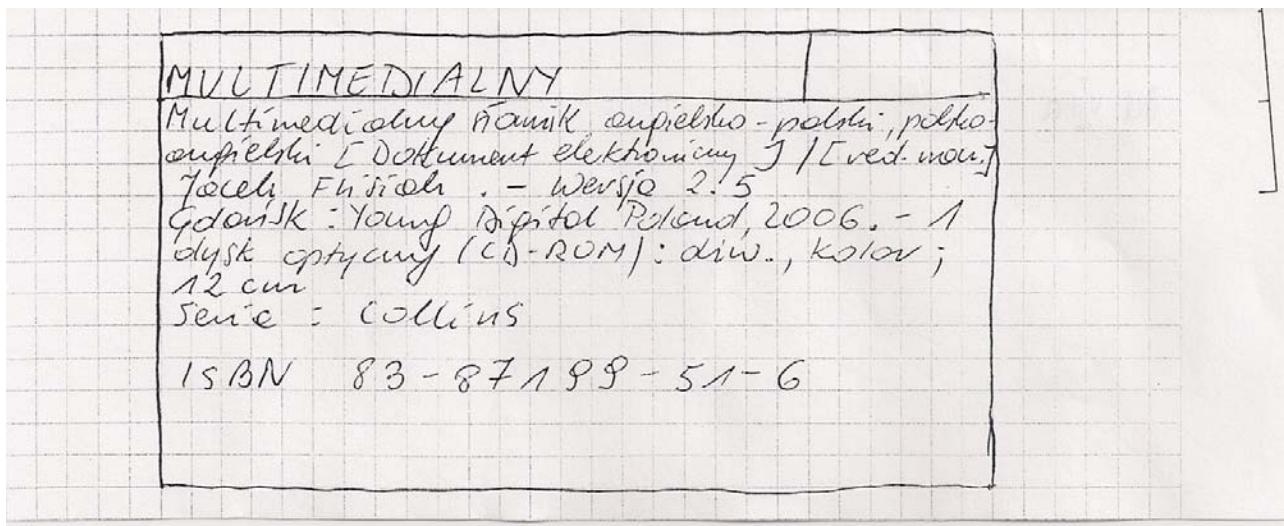 MULTIMEDIALNY
Multimedialny słownik angielsko-polski, polsko-
angielski [Dokument elektroniczny] / [red. nau.]
Jacek Fisiak . - Wersja 2.5
Gdańsk : Young Digital Poland, 2006. - 1
dysk optyczny (CD-ROM) : dźw., kolor ;
12 cm
Seria : Collins
ISBN 83-87199-51-6